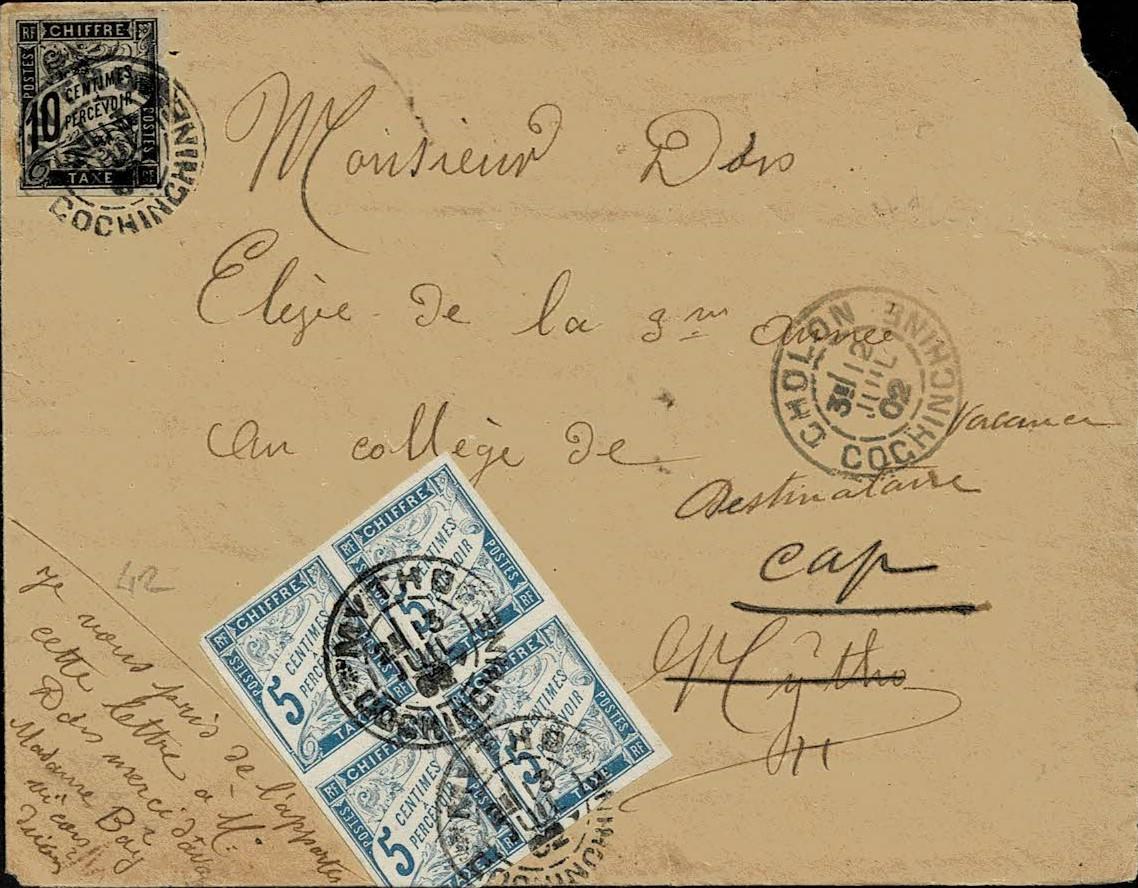 RF CHIFFRE
POSTES
10 CENTIMES
PERCEVOIR
POSTES
TAXE RF
COCHINCHINE
Monsieur Dois
Elève de la 3me année
au collège de
CHOLON COCHINCHINE
3E 12
JUIL
02
Vacances
Destinataire
cap
Mytho
42
RF CHIFFRE
POSTES
5 CENTIMES
PERCEVOIR
TAXE
RF CHIFFRE
POSTES
5 CENTIMES
PERCEVOIR
POSTES
TAXE RF
CHIFFRE
POSTES
5 CENTIMES
PERCEVOIR
TAXE
CHIFFRE
5 CENTIMES
PERCEVOIR
POSTES
RF
MYTHO COCHINCHINE
JUIL
Je vous pris de l'apporter
cette lettre a Mr
Dois merci
Madame Bay